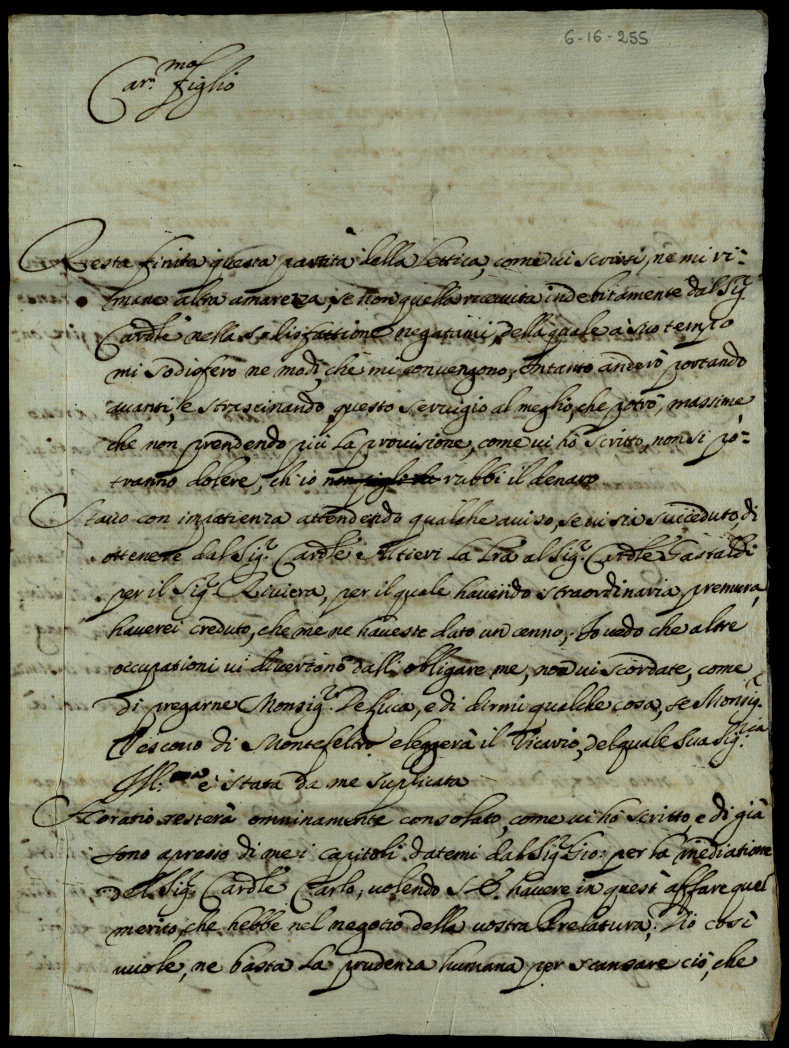 6-16-255
Car.mo figlio
Resta finita questa partita della lettica, come ui scrissi, ne mi ri=
mane altra amarezza, se non quella riceuuta indebitamente dal Sig.r
Cardle nella sodisfattione negatami, della quale a suo tempo
mi sodisferò ne modi, che mi conuengono, Intanto anderò portando
auanti, e strascinando questo seruigio al meglio, che potrò, massime
che non prendendo più la prouisione, come ui hò scritto, non si po=
tranno dolere, ch'io rubbi il denaro
Stauo con impatienza attendendo qualche auiso, se ui sia succeduto, di
ottenere dal Sig.r Cardle Altieri la lra al Sig.r Cardle Gastaldi
per il Sig.r Riuiera, per il quale hauendo straordinaria premura,
hauerei creduto, che me ne haueste dato un cenno, Io uedo che altre
occupationi ui diuertono dall'obligare me, non ui scordate, come
di pregarne Monsig.r De Luca, e di dirmi qualche cosa, se Monsig.r
Vescouo di Montefeltro eleggerà il Vicario, del quale Sua Sig.ria
Ill.ma è stata da me suplicata
Horatio resterà omninamente consolato, come ui hò scritto, e di già
sono apresso di me i capitoli datemi dal Sig.r Gio: per la mediatione
del Sig.r Cardle Carlo, uolendo S. E. hauere in quest'affare quel
merito, che hebbe nel negotio della uostra Prelatura, Dio così
uuole, ne basta la prudenza humana per scansare ciò, che